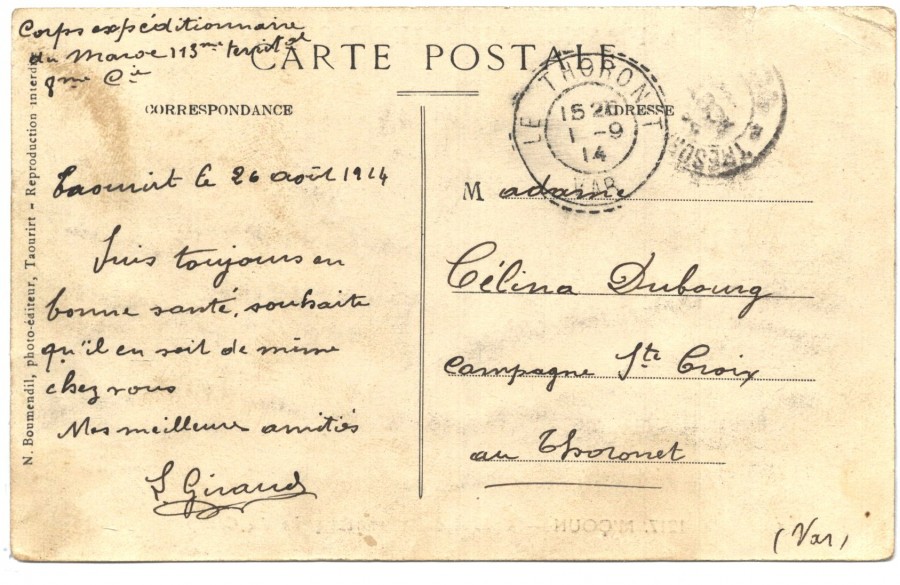 Corps expéditionnaire
du Maroc 113me territal
8me Cie
CARTE POSTALE
CORRESPONDANCE
ADRESSE
LE THORONET
15 25
1 -9
14
VAR
TRESOR
Taourirt le 26 août 1914
Suis toujours en
bonne santé, souhaite
qu'il en soit de même
chez vous
Mes meilleures amitiés
S. Giraud
Madame
Célina Dubourg
Campagne Ste Croix
au Thoronet
(Var)
N. Boumendil, photo-éditeur, Taourirt - Reproduction interd